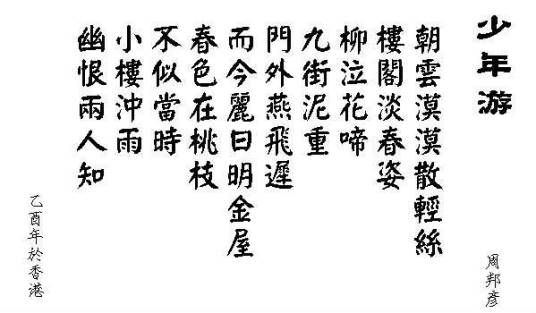 少年游
周邦彥
朝雲漠漠散輕絲
樓閣淡春姿
柳泣花啼
九街泥重
門外燕飛遲
而今麗日明金屋
春色在桃枝
不似當時
小樓沖雨
幽恨兩人知
乙酉年於香港